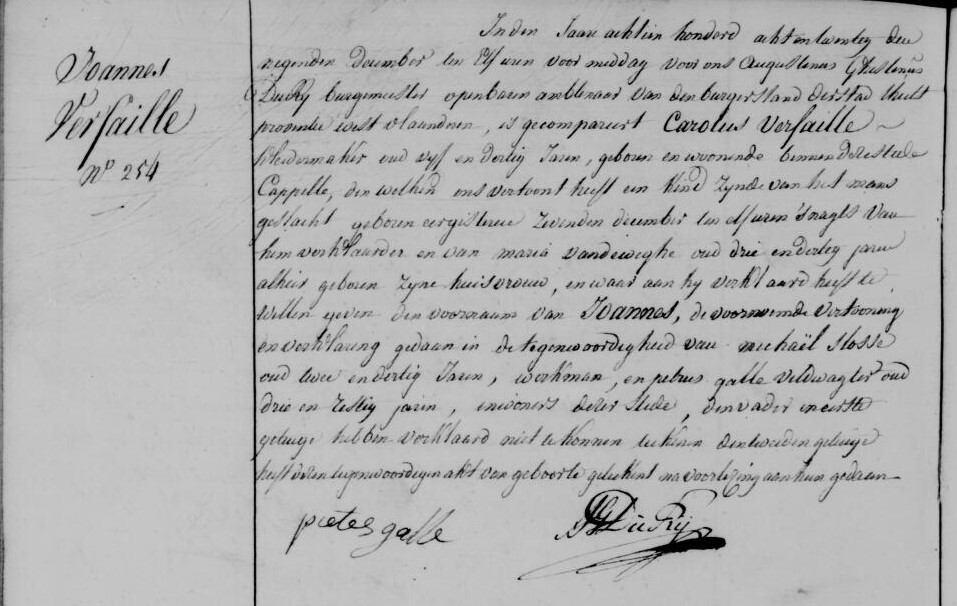 Joannes
Versaille
N° 254
In den Jaare achtien honderd acht en twentig den
negenden December ten Elf uren voor middag voor ons Augustinus Ghislenus
DuRy burgemeester openbaren ambtenaar van den burgerstand der stad thielt
provintie west vlaenderen, is gecompareert Carolus Versaille ~
kleedermaker oud vyf en dertig Jaren, geboren en woonende binnen deze stede
Cappelle, den welken ons vertoont heeft een kind zynde van het mans
geslacht geboren eergisteren zevenden december ten elf uren s'nagts van
hem verklaarder en van maria vandeweghe oud drie en dertig jaren
alhier geboren zyne huisvrouw, en waar aan hy verklaard heeft te
willen geven den voornaam van Joannes, de voornoemde vertooning
en verklaring gedaan in de tegenwoordigheid van michaël Slosse
oud twee en dertig Jaren, werkman, en petrus galle veldwagter oud
drie en zestig jaren, inwoners dezer stede, den vader en eerste
getuige hebben verklaard niet te konnen teekenen den tweeden getuige
heeft dezen tegenwoordigen akt van geboorte geteekent na voorlezing aan hun gedaan
pieter galle
AG DuRÿ